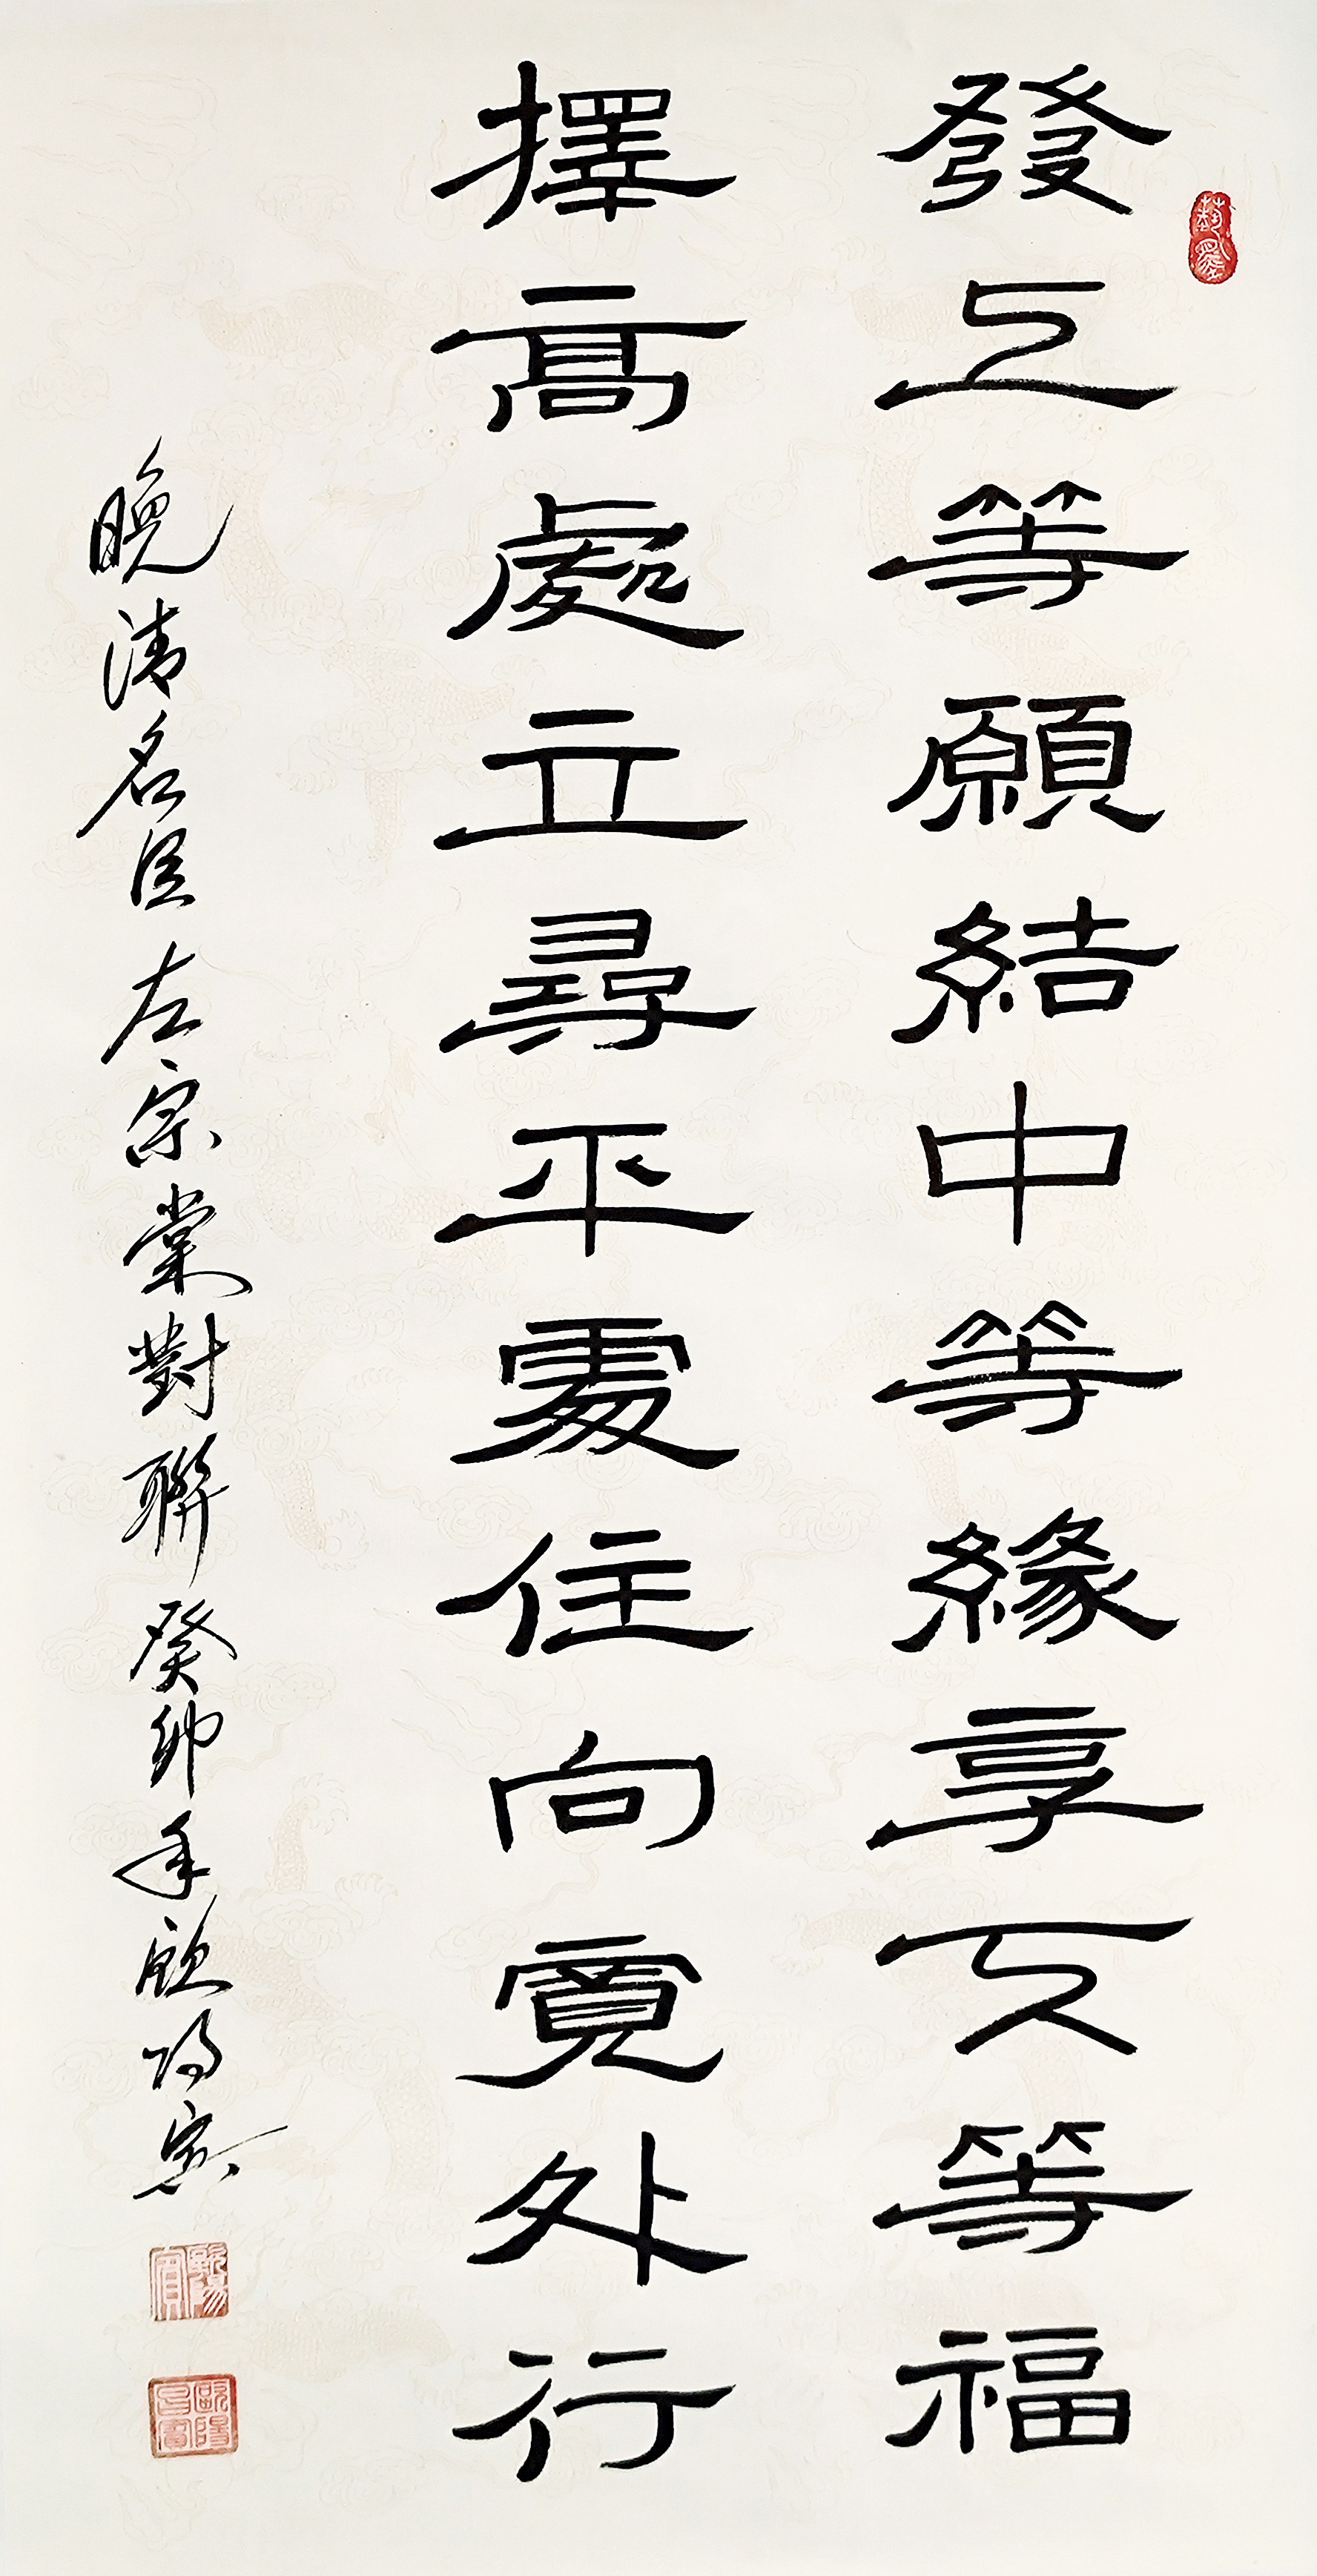 發上等願結中等緣享下等福
擇高處立尋平處住向寬处行
晚清名臣左宗棠對聯癸卯年欧陽賓
歐陽賓